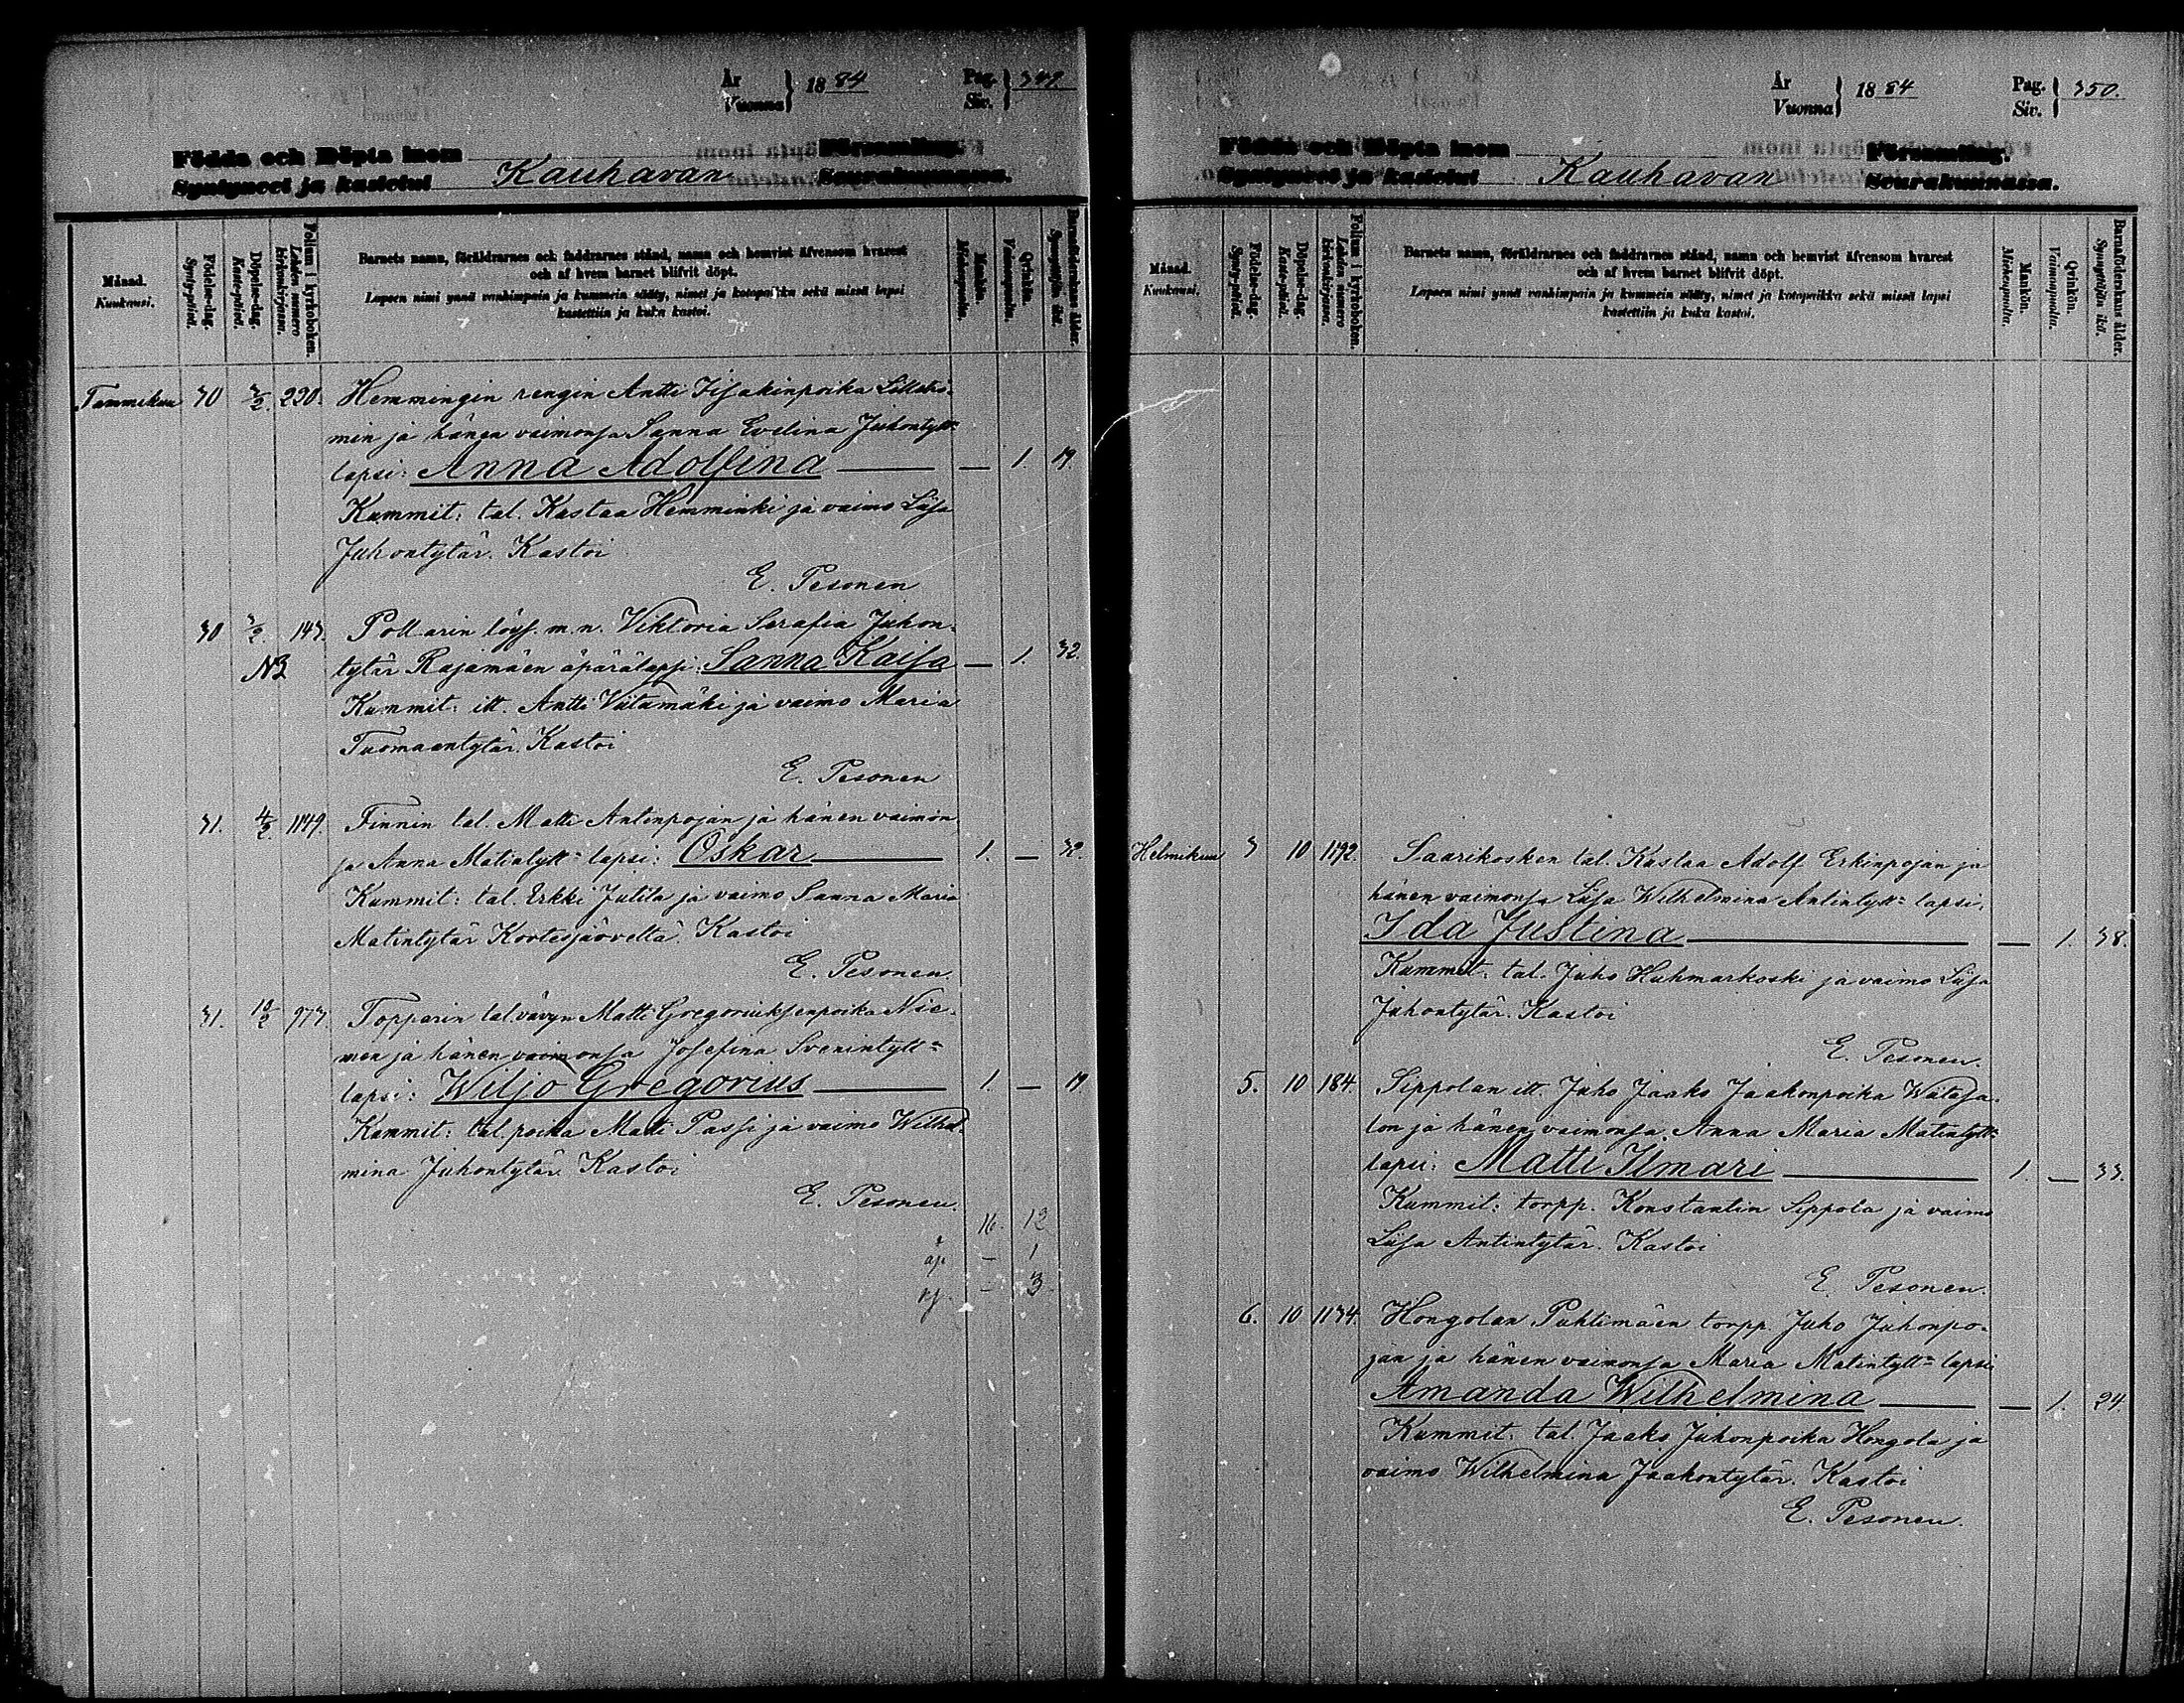 År
Vuonna } 1884
Pag.
Siv. } 349.
Födda och Döpta inom Församling.
Syntyneet ja kastetut Kauhavan Seurakunnassa.
Månad.
Kuukausi.
Födelse-dag.
Synty-päivä.
Döpelse-dag.
Kaste-päivä.
Folium i kyrkoboken.
Lehden numero kirkonkirjassa.
Barnets namn, föräldrarnes och faddrarnes stånd, namn och hemvist äfvensom hvarest
och af hvem barnet blifvit döpt.
Lapsen nimi ynnä vanhimpain ja kummein sääty, nimet ja kotopaikka sekä missä lapsi
kastettiin ja kuka kastoi.
Mankön.
Miehenpuolta.
Qvinkön.
Vaimonpuolta.
Barnaföderskans ålder.
Synnyttäjän ikä.
Tammikuu 30 3/2. 220. Hemmingin rengin Antti Iisakinpoika Lillströ-
min ja hänen vaimonsa Sanna Evelina Juhontytt=
lapsi: Anna Adolfina — 1. 19.
Kummit: tal. Kustaa Hemminki ja vaimo Liisa
Juhontytär. Kastoi
E. Pesonen
30 3/2. 143. Pollarin löys. m.n. Viktoria Serafia Juhon-
NB tytär Rajamäen äpärälapsi: Sanna Kaisa — 1. 32.
Kummit: itt. Antti Viitamäki ja vaimo Maria
Tuomaantytär. Kastoi
E. Pesonen
31. 4/2. 1149. Finnin tal. Matti Antinpojan ja hänen vaimon
sa Anna Matintytt= lapsi: Oskar 1. — 32.
Kummit: tal. Erkki Jutila ja vaimo Sanna Maria
Matintytär Kortesjärveltä. Kastoi
E. Pesonen.
31. 10/2 973. Topparin tal. vävyn Matti Gregoriuksenpoika Nie-
men ja hänen vaimonsa Josefina Svenintytt=
lapsi: Wiljo Gregorius 1. — 19
Kummit: tal. poika Matti Passi ja vaimo Wilhel-
mina Juhontytär. Kastoi
E. Pesonen.
16. 12
äp. — 1
— 3
År
Vuonna } 1884
Pag.
Siv. } 350.
Födda och Döpta inom Församling.
Syntyneet ja kastetut Kauhavan Seurakunnassa.
Månad.
Kuukausi.
Födelse-dag.
Synty-päivä.
Döpelse-dag.
Kaste-päivä.
Folium i kyrkoboken.
Lehden numero kirkonkirjassa.
Barnets namn, föräldrarnes och faddrarnes stånd, namn och hemvist äfvensom hvarest
och af hvem barnet blifvit döpt.
Lapsen nimi ynnä vanhimpain ja kummein sääty, nimet ja kotopaikka sekä missä lapsi
kastettiin ja kuka kastoi.
Mankön.
Miehenpuolta.
Qvinkön.
Vaimonpuolta.
Barnaföderskans ålder.
Synnyttäjän ikä.
Helmikuu 3 10 1192. Saarikosken tal. Kustaa Adolf Erkinpojan ja
hänen vaimonsa Liisa Wilhelmina Antintytt= lapsi.
Ida Justina — 1. 38.
Kummit: tal. Juho Huhmarkoski ja vaimo Liisa
Juhontytär. Kastoi
E. Pesonen.
5. 10 184. Sippolan itt. Juho Jaako Jaakonpoika Wiitasa-
lon ja hänen vaimonsa Anna Maria Matintytt=
lapsi: Matti Ilmari 1. — 33.
Kummit: torpp. Konstantin Sippola ja vaimo
Liisa Antintytär. Kastoi
E. Pesonen.
6. 10 1134. Hongolan Puhtimäen torpp Juho Juhonpo-
jan ja hänen vaimonsa Maria Matintytt= lapsi
Amanda Wilhelmina — 1. 24.
Kummit: tal. Jaako Juhonpoika Hongola ja
vaimo Wilhelmina Jaakontytär. Kastoi
E. Pesonen.